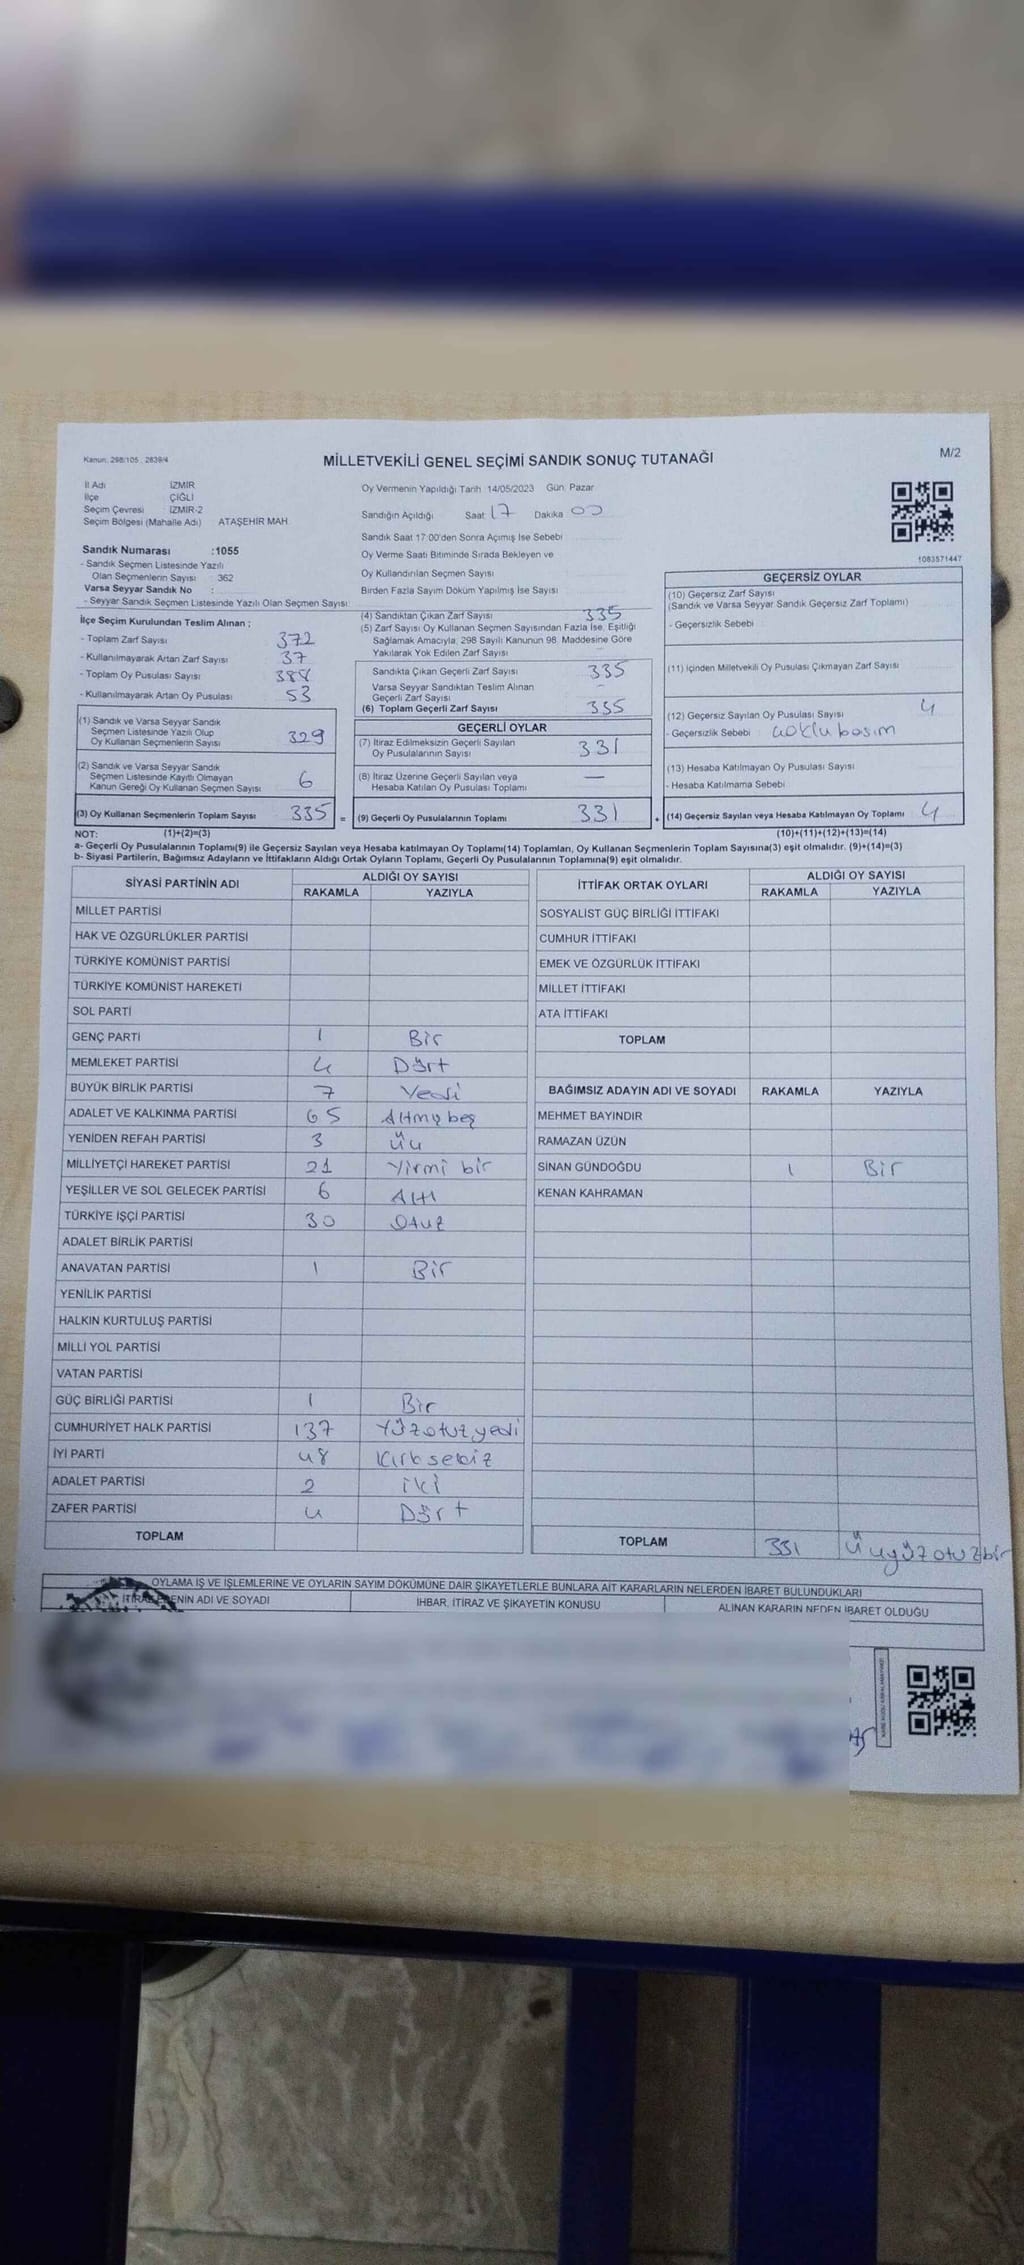 Kanun: 298/105 , 2839/4
MİLLETVEKİLİ GENEL SEÇİMİ SANDIK SONUÇ TUTANAĞI
M/2
İl Adı İZMİR
İlçe ÇİĞLİ
Seçim Çevresi İZMİR-2
Seçim Bölgesi (Mahalle Adı) ATAŞEHİR MAH.
Oy Vermenin Yapıldığı Tarih 14/05/2023 Gün: Pazar
Sandığın Açıldığı Saat 17 Dakika 00
Sandık Saat 17:00'den Sonra Açımış İse Sebebi
Oy Verme Saati Bitiminde Sırada Bekleyen ve
Oy Kullandırılan Seçmen Sayısı
Birden Fazla Sayım Döküm Yapılmış İse Sayısı
1083571447
Sandık Numarası :1055
- Sandık Seçmen Listesinde Yazılı
Olan Seçmenlerin Sayısı : 362
Varsa Seyyar Sandık No :
- Seyyar Sandık Seçmen Listesinde Yazılı Olan Seçmen Sayısı:
İlçe Seçim Kurulundan Teslim Alınan ;
- Toplam Zarf Sayısı 372
- Kullanılmayarak Artan Zarf Sayısı 37
- Toplam Oy Pusulası Sayısı 388
- Kullanılmayarak Artan Oy Pusulası 53
(1) Sandık ve Varsa Seyyar Sandık
Seçmen Listesinde Yazılı Olup
Oy Kullanan Seçmenlerin Sayısı 329
(2) Sandık ve Varsa Seyyar Sandık
Seçmen Listesinde Kayıtlı Olmayan
Kanun Gereği Oy Kullanan Seçmen Sayısı 6
(3) Oy Kullanan Seçmenlerin Toplam Sayısı 335 =
(4) Sandıktan Çıkan Zarf Sayısı 335
(5) Zarf Sayısı Oy Kullanan Seçmen Sayısından Fazla İse, Eşitliği
Sağlamak Amacıyla, 298 Sayılı Kanunun 98. Maddesine Göre
Yakılarak Yok Edilen Zarf Sayısı
Sandıkta Çıkan Geçerli Zarf Sayısı 335
Varsa Seyyar Sandıktan Teslim Alınan
Geçerli Zarf Sayısı
(6) Toplam Geçerli Zarf Sayısı 335
GEÇERLİ OYLAR
(7) İtiraz Edilmeksizin Geçerli Sayılan
Oy Pusulalarının Sayısı 331
(8) İtiraz Üzerine Geçerli Sayılan veya
Hesaba Katılan Oy Pusulası Toplamı —
(9) Geçerli Oy Pusulalarının Toplamı 331 +
GEÇERSİZ OYLAR
(10) Geçersiz Zarf Sayısı
(Sandık ve Varsa Seyyar Sandık Geçersiz Zarf Toplamı)
- Geçersizlik Sebebi
(11) İçinden Milletvekili Oy Pusulası Çıkmayan Zarf Sayısı
(12) Geçersiz Sayılan Oy Pusulası Sayısı 4
- Geçersizlik Sebebi çoklu basım
(13) Hesaba Katılmayan Oy Pusulası Sayısı
- Hesaba Katılmama Sebebi
(14) Geçersiz Sayılan veya Hesaba Katılmayan Oy Toplamı 4
NOT: (1)+(2)=(3) (10)+(11)+(12)+(13)=(14)
a- Geçerli Oy Pusulalarının Toplamı(9) ile Geçersiz Sayılan veya Hesaba katılmayan Oy Toplamı(14) Toplamları, Oy Kullanan Seçmenlerin Toplam Sayısına(3) eşit olmalıdır. (9)+(14)=(3)
b- Siyasi Partilerin, Bağımsız Adayların ve İttifakların Aldığı Ortak Oyların Toplamı, Geçerli Oy Pusulalarının Toplamına(9) eşit olmalıdır.
SİYASİ PARTİNİN ADI ALDIĞI OY SAYISI
RAKAMLA YAZIYLA
MİLLET PARTİSİ
HAK VE ÖZGÜRLÜKLER PARTİSİ
TÜRKİYE KOMÜNİST PARTİSİ
TÜRKİYE KOMÜNİST HAREKETİ
SOL PARTİ
GENÇ PARTİ 1 Bir
MEMLEKET PARTİSİ 4 Dört
BÜYÜK BİRLİK PARTİSİ 7 Yedi
ADALET VE KALKINMA PARTİSİ 65 Altmış beş
YENİDEN REFAH PARTİSİ 3 Üç
MİLLİYETÇİ HAREKET PARTİSİ 21 Yirmi bir
YEŞİLLER VE SOL GELECEK PARTİSİ 6 Altı
TÜRKİYE İŞÇİ PARTİSİ 30 Otuz
ADALET BİRLİK PARTİSİ
ANAVATAN PARTİSİ 1 Bir
YENİLİK PARTİSİ
HALKIN KURTULUŞ PARTİSİ
MİLLİ YOL PARTİSİ
VATAN PARTİSİ
GÜÇ BİRLİĞİ PARTİSİ 1 Bir
CUMHURİYET HALK PARTİSİ 137 Yüzotuzyedi
İYİ PARTİ 48 Kırksekiz
ADALET PARTİSİ 2 İki
ZAFER PARTİSİ 4 Dört
TOPLAM
İTTİFAK ORTAK OYLARI ALDIĞI OY SAYISI
RAKAMLA YAZIYLA
SOSYALİST GÜÇ BİRLİĞİ İTTİFAKI
CUMHUR İTTİFAKI
EMEK VE ÖZGÜRLÜK İTTİFAKI
MİLLET İTTİFAKI
ATA İTTİFAKI
TOPLAM
BAĞIMSIZ ADAYIN ADI VE SOYADI RAKAMLA YAZIYLA
MEHMET BAYINDIR
RAMAZAN ÜZÜN
SİNAN GÜNDOĞDU 1 Bir
KENAN KAHRAMAN
TOPLAM 331 Üçyüzotuzbir
OYLAMA İŞ VE İŞLEMLERİNE VE OYLARIN SAYIM DÖKÜMÜNE DAİR ŞİKAYETLERLE BUNLARA AİT KARARLARIN NELERDEN İBARET BULUNDUKLARI
İTİRAZ EDENİN ADI VE SOYADI İHBAR, İTİRAZ VE ŞİKAYETİN KONUSU ALINAN KARARIN NEDEN İBARET OLDUĞU